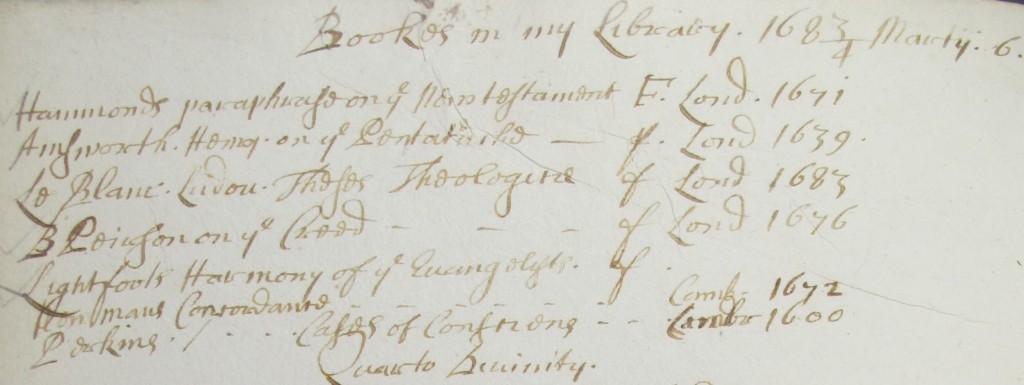 Bookes in my Library. 1683/4 Martij. 6.
Hammonds paraphrase on ye New testament F. Lond. 1671
Ainsworth. Henry. on ye Pentatuche — f. Lond 1639.
Le Blanc. Ludov. Theses Theologicæ f Lond 1683
B Peirson on ye Creed - - - f Lond 1676
Lightfoots Harmony of ye Evangelysts. f.
Newmans Concordance - - - - Camb. 1672
Perkins. . . . . Cases of Consciens - - Cambr 1600
Quarto Divinity.